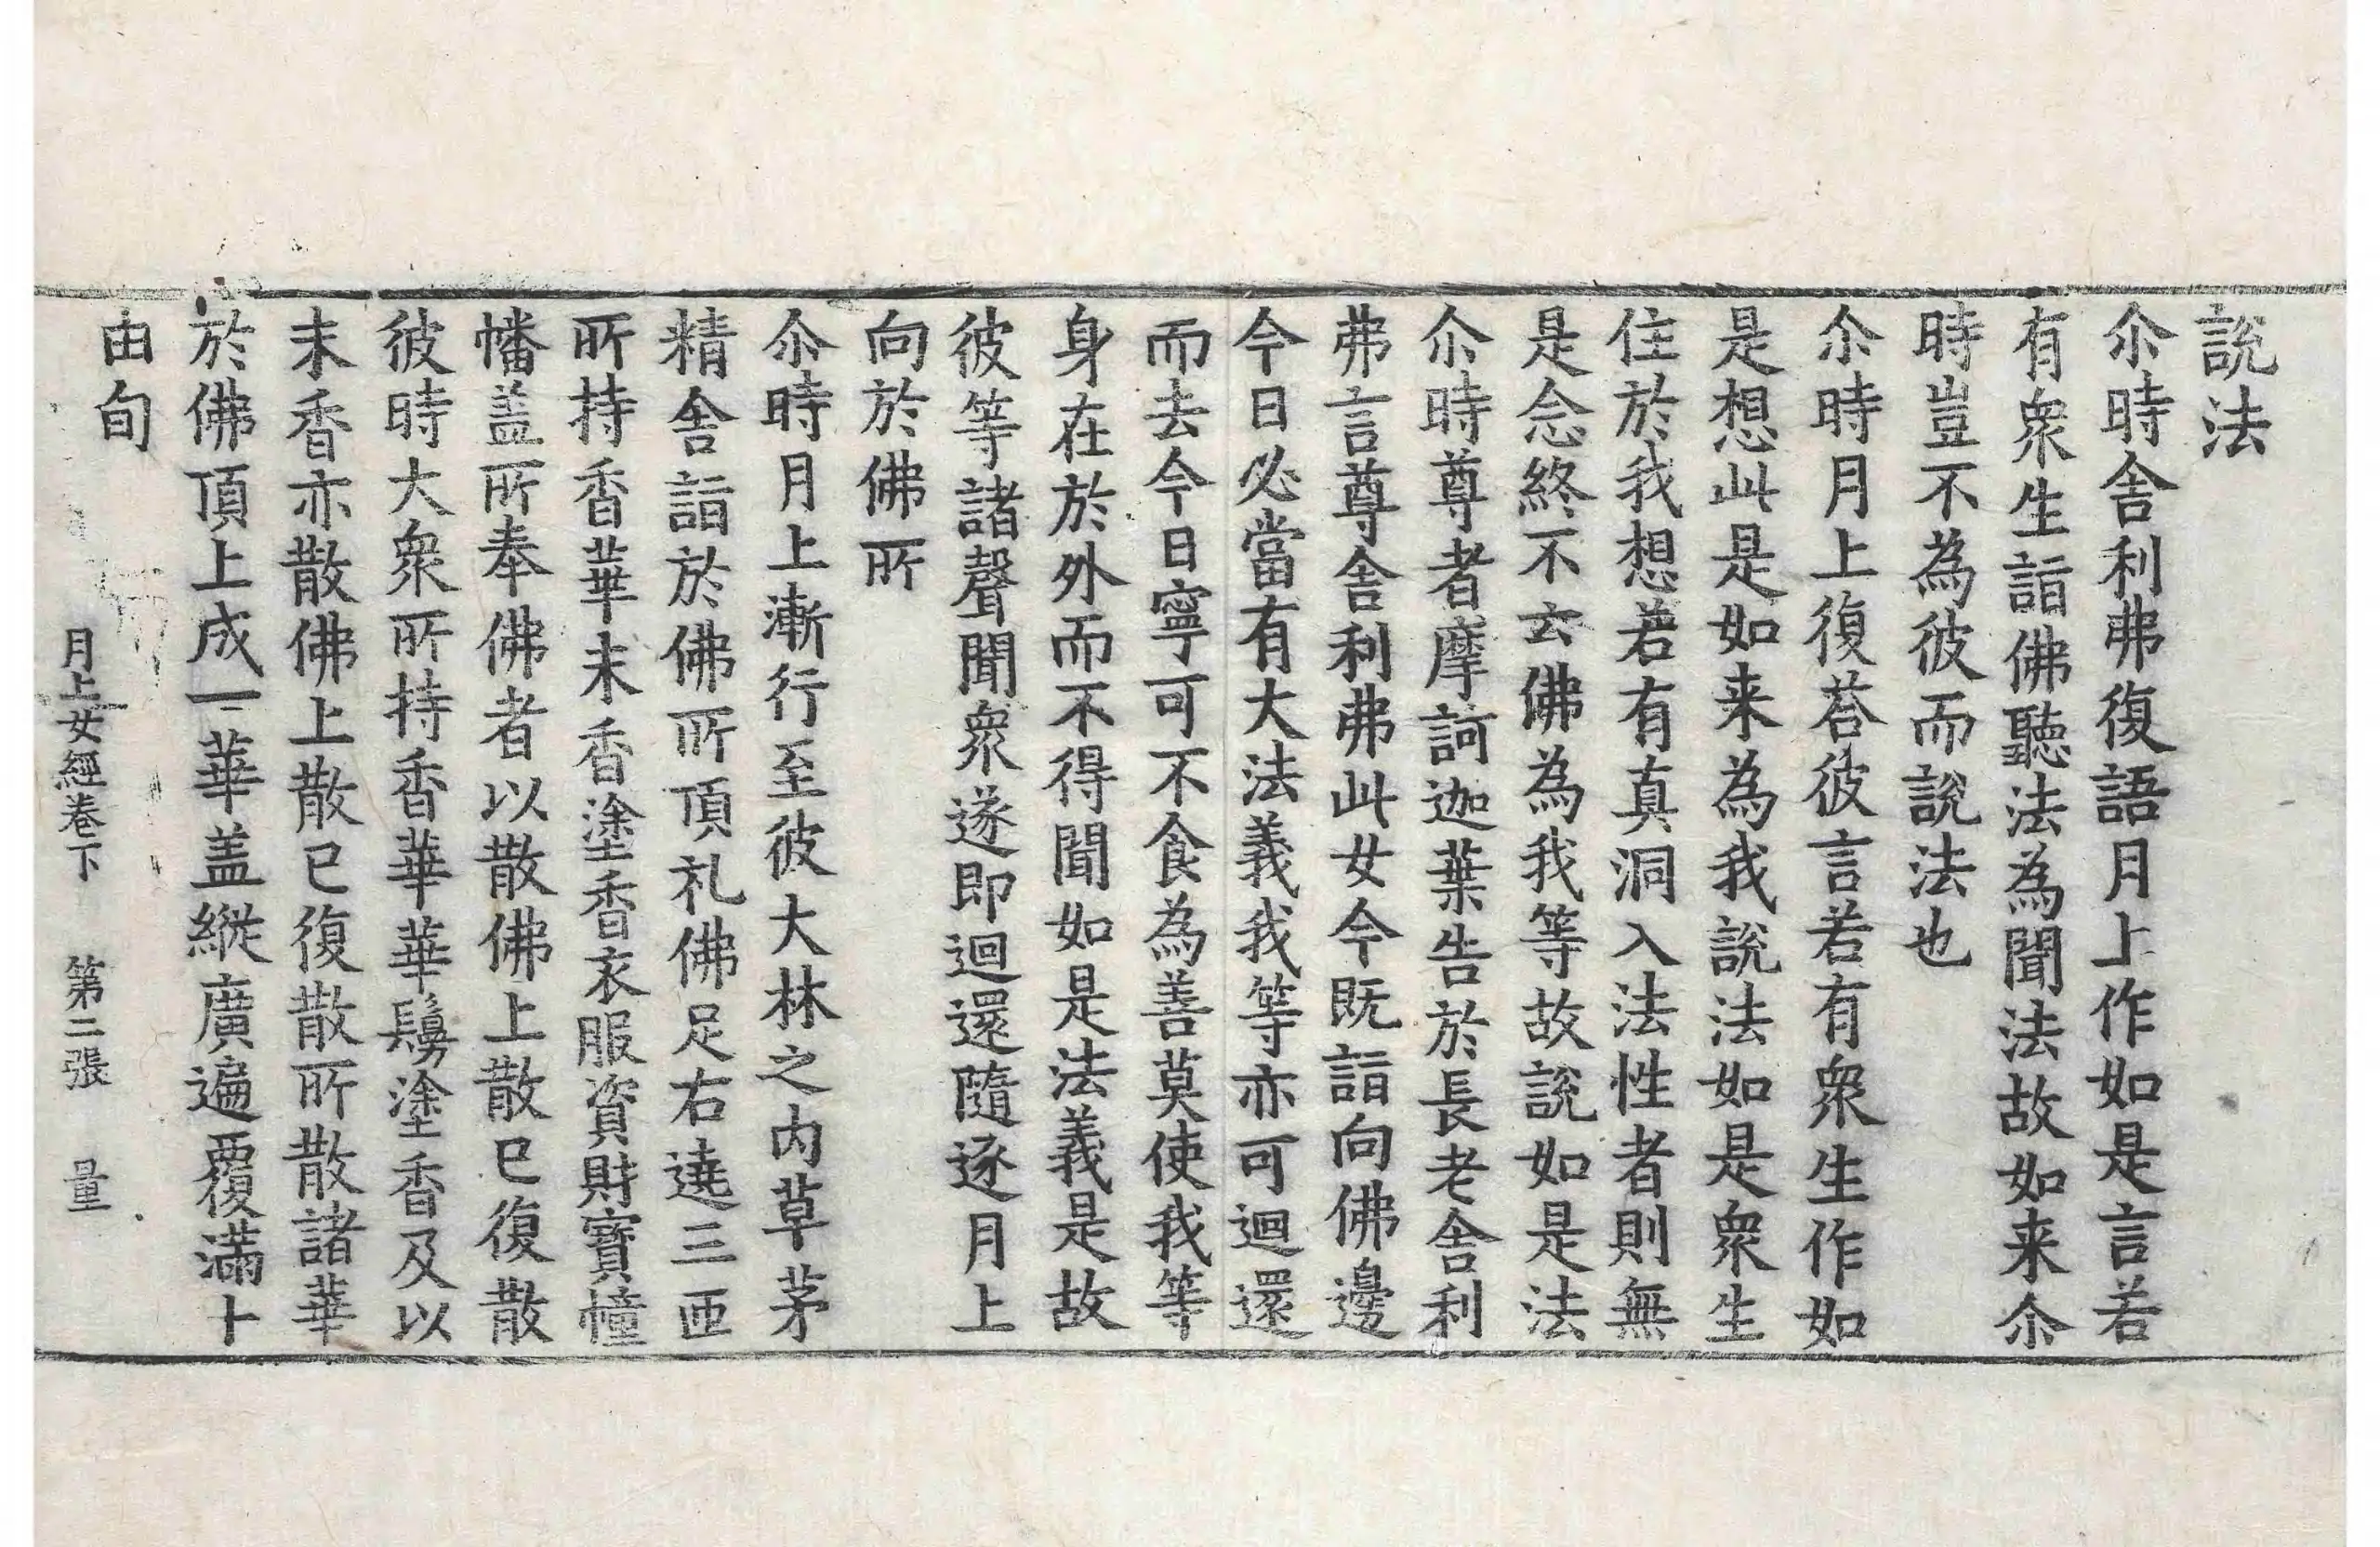 說法
尒時舍利弗復語月上作如是言若
有衆生詣佛聽法為聞法故如来尒
時豈不為彼而說法也
尒時月上復荅彼言若有衆生作如
是想此是如来為我說法如是衆生
住於我想若有真洞入法性者則無
是念終不云佛為我等故說如是法
尒時尊者摩訶迦葉告於長老舍利
弗言尊舍利弗此女今既詣向佛邊
今日必當有大法義我等亦可迴還
而去今日寧可不食為善莫使我等
身在於外而不得聞如是法義是故
彼等諸聲聞衆遂即迴還隨逐月上
向於佛所
尒時月上漸行至彼大林之内草茅
精舍詣於佛所頂礼佛足右遶三匝
所持香華末香塗香衣服資財寶幢
幡盖所奉佛者以散佛上散已復散
彼時大衆所持香華華鬘塗香及以
末香亦散佛上散已復散所散諸華
於佛頂上成一華盖縱廣遍覆滿十
由旬
月上女經卷下 第二張 量